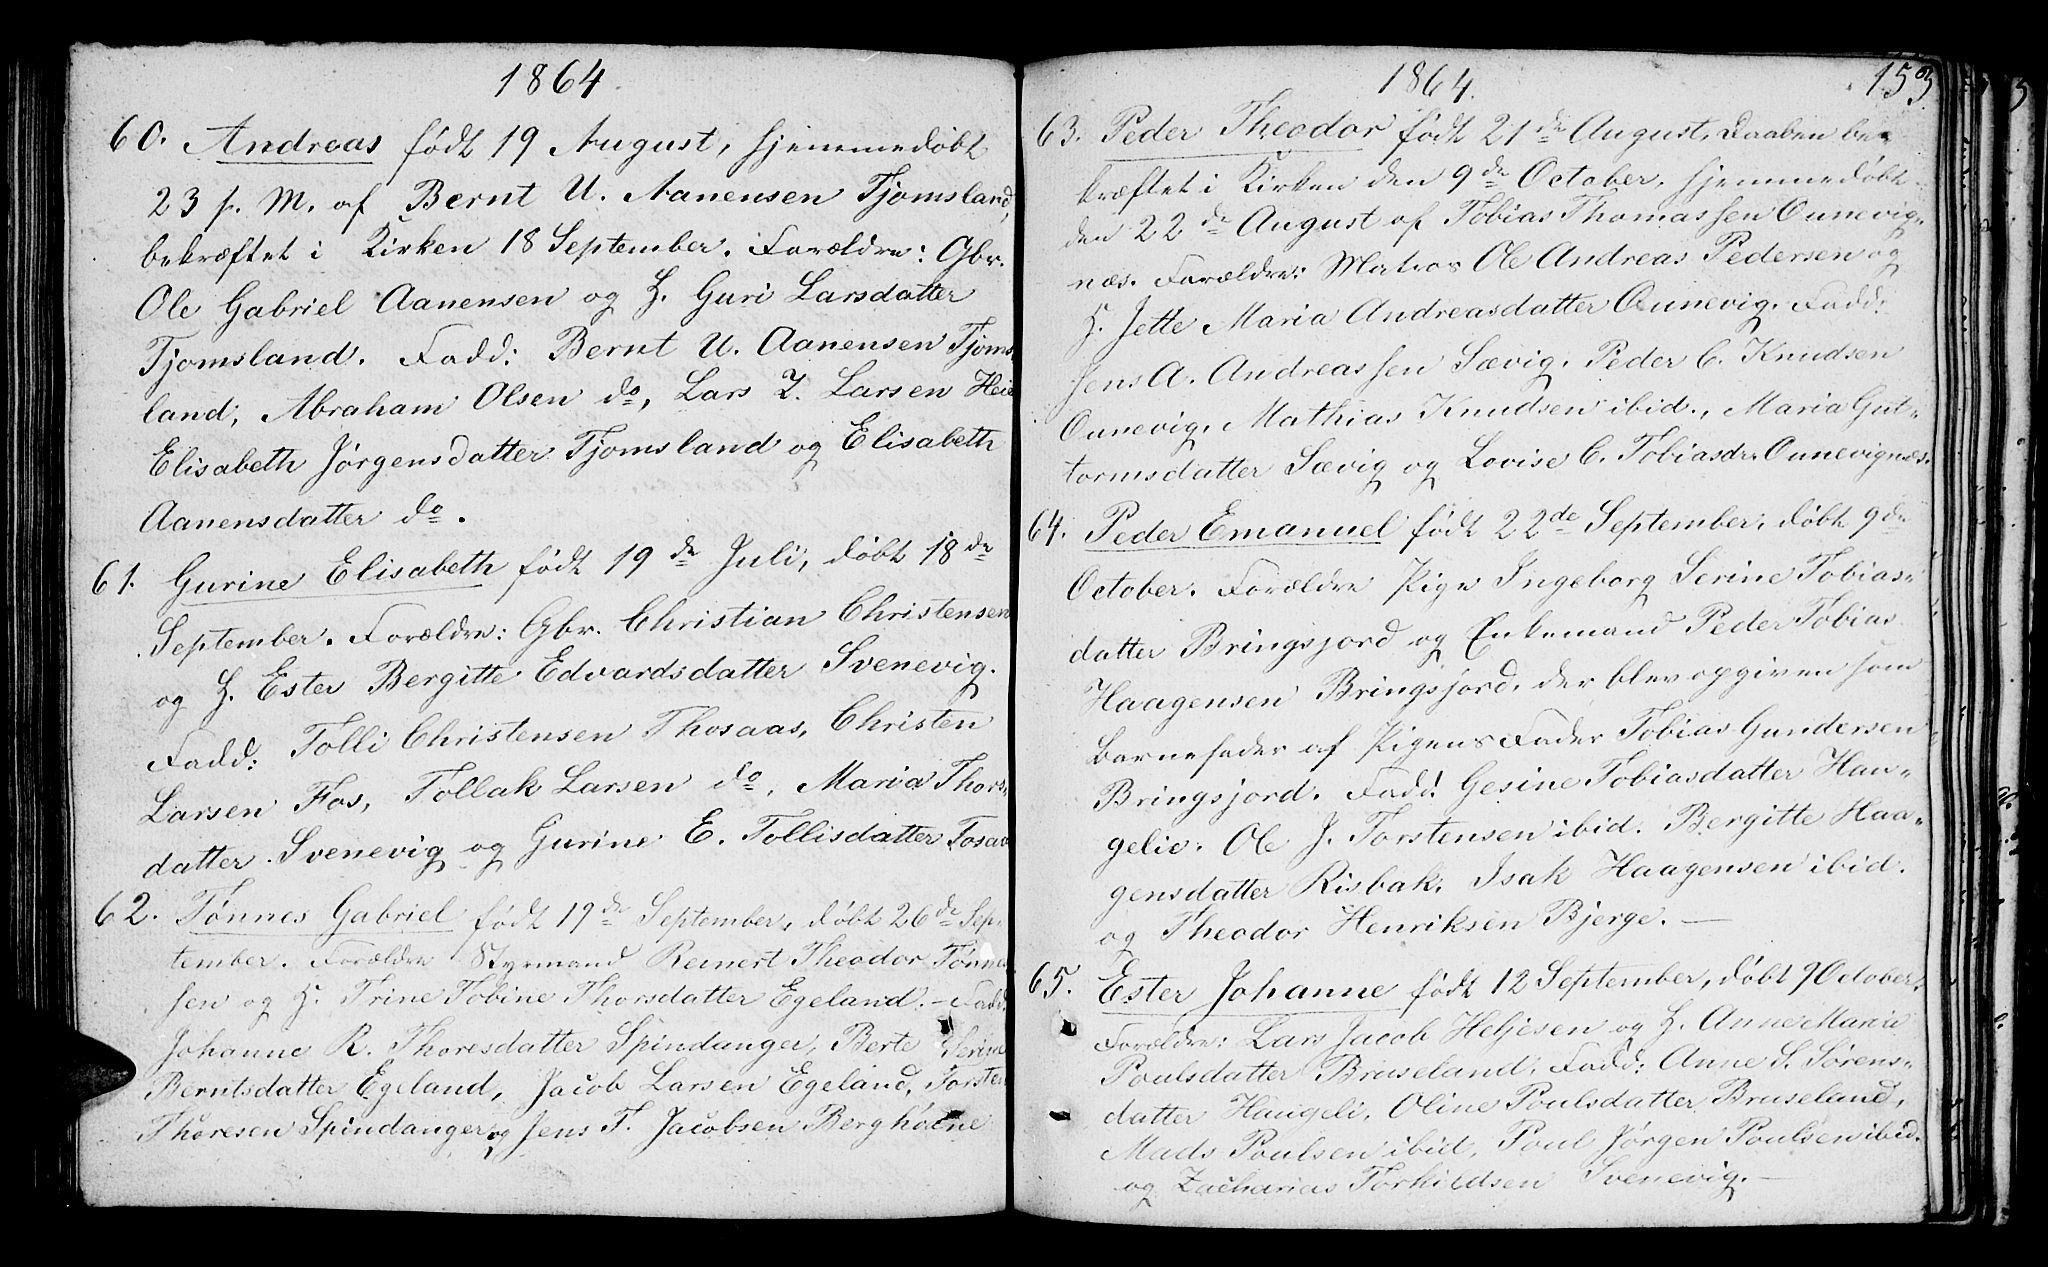 1864.
60. Andreas født 19 August, hjemmedøbt
23 s. M. af Bernt U. Aanensen Tjomsland,
bekræftet i Kirken 18 September. Forældre: Gbr.
Ole Gabriel Aanensen og H. Guri Larsdatter
Tjomsland. Fadd: Bernt U. Aanensen Tjoms
land, Abraham Olsen do, Lars T. Larsen Heie
Elisabeth Jørgensdatter Tjomsland og Elisabeth
Aanensdatter do.
61. Gurine Elisabeth født 19de Juli, døbt 18de
September. Forældre: Gbr. Christian Christensen
og H. Ester Bergitte Edvardsdatter Svenevig.
Fadd: Tolli Christensen Thosaas, Christen
Larsen Fos, Tollak Larsen do, Maria Thors-
datter Svenevig og Gurine E. Tollisdatter Tosaas
62. Tønnes Gabriel født 19de September, døbt 26de Sep-
tember. Forældre Styrmand Reinert Theodor Tønne
sen og H. Trine Tobine Thorsdatter Egeland. - Fadd:
Johanne R. Thoresdatter Spindanger, Berte Serine
Berntsdatter Egeland, Jacob Larsen Egeland, Torsten
Thoresen Spindanger og Jens T. Jacobsen Bergholne
1864.
153
63. Peder Theodor født 21de August, Daaben be-
kræftet i Kirken den 9de October, hjemmedøbt
den 22de August af Tobias Thomassen Ounevig-
næs. Forældre: Matros Ole Andreas Pedersen og
H. Jette Maria Andreasdatter Ounevig. Fadd:
Jens A. Andreassen Sævig, Peder C. Knudsen
Ounevig, Mathias Knudsen ibid., Maria Gut-
tormsdatter Sævig og Lovise C. Tobiasdr. Ounevignæs.
64. Peder Emanuel født 22de September, døbt 9de
October. Forældre Pige Ingeborg Serine Tobias-
datter Bringsjord og Enkemand Peder Tobias
Haagensen Bringsjord, der blev opgiven som
Barnefader af Pigens Fader Tobias Gundersen
Bringsjord. Fadd. Gesine Tobiasdatter Hau-
gelie. Ole J. Torstensen ibid. Bergitte Haa-
gensdatter Risbak. Isak Haagensen ibid.
og Theodor Henriksen Bjerge. —
65. Ester Johanne født 12 September, døbt 9 October.
Forældre: Lars Jacob Heljesen og H. Anne Marie
Poulsdatter Bruseland. Fadd: Anne S. Sørens-
datter Haugeli, Oline Poulsdatter Bruseland,
Mads Poulsen ibid, Poul Jørgen Poulsen ibid.
og Zacharias Torkildsen Svenevig. —